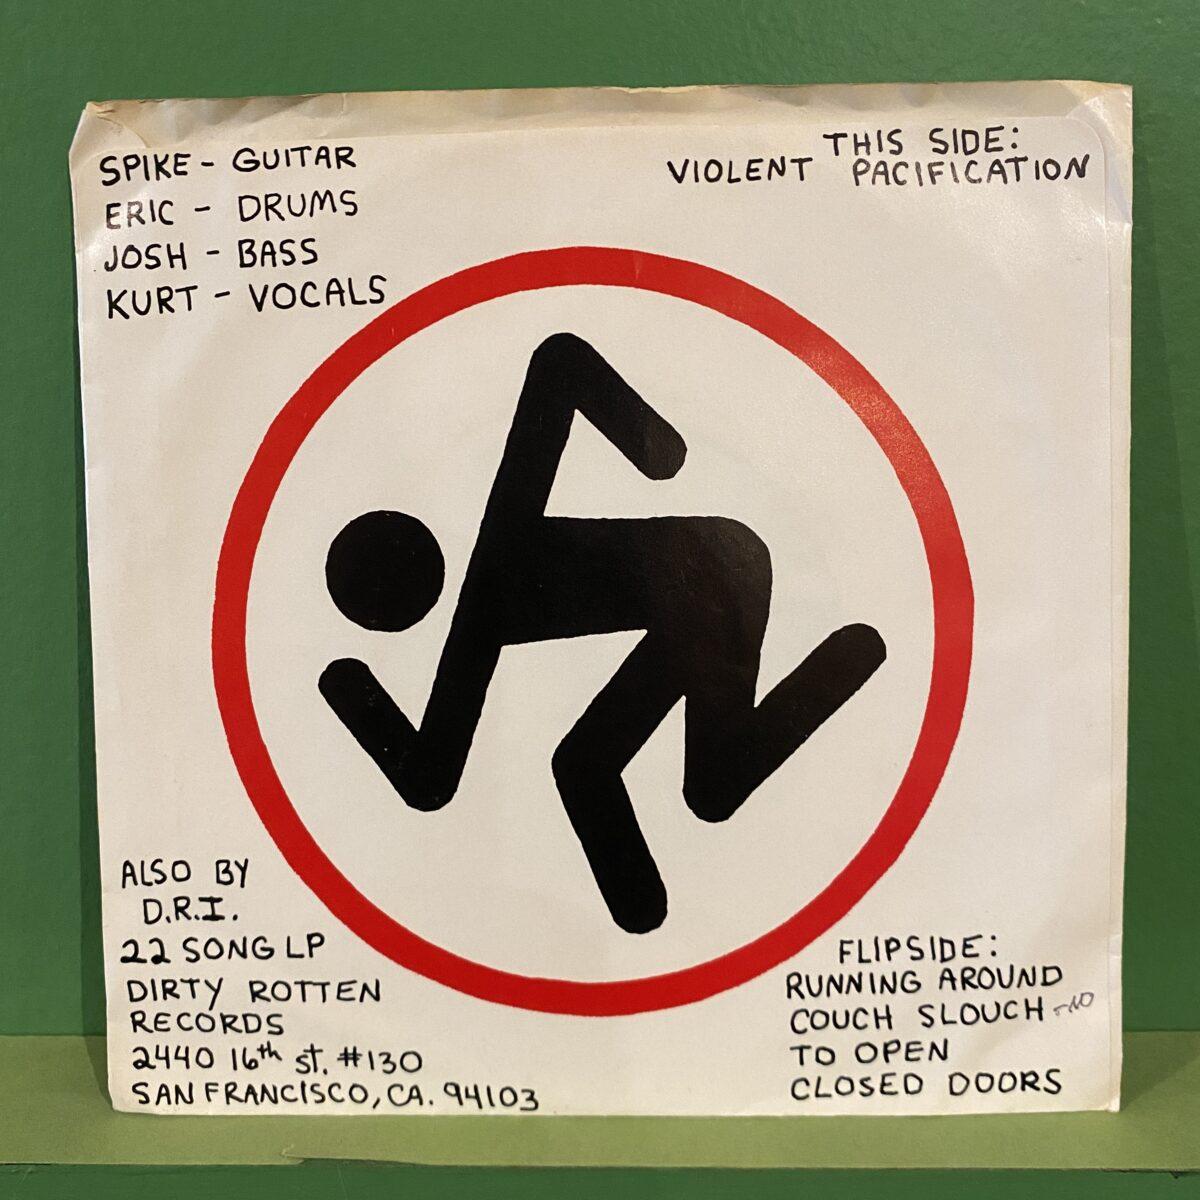 SPIKE - GUITAR
ERIC - DRUMS
JOSH - BASS
KURT - VOCALS
THIS SIDE:
VIOLENT PACIFICATION
ALSO BY
D.R.I.
22 SONG LP
DIRTY ROTTEN
RECORDS
2440 16th St. #130
SAN FRANCISCO, CA. 94103
FLIPSIDE:
RUNNING AROUND
COUCH SLOUCH -NO
TO OPEN
CLOSED DOORS